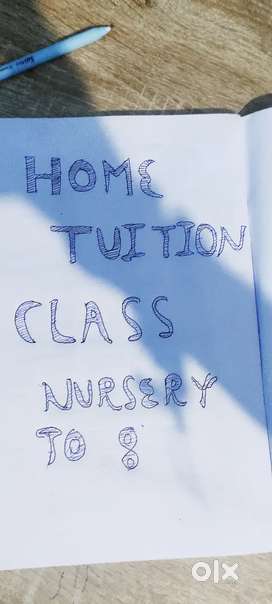 HOME
TUITION
CLASS
NURSERY
TO 8
olx